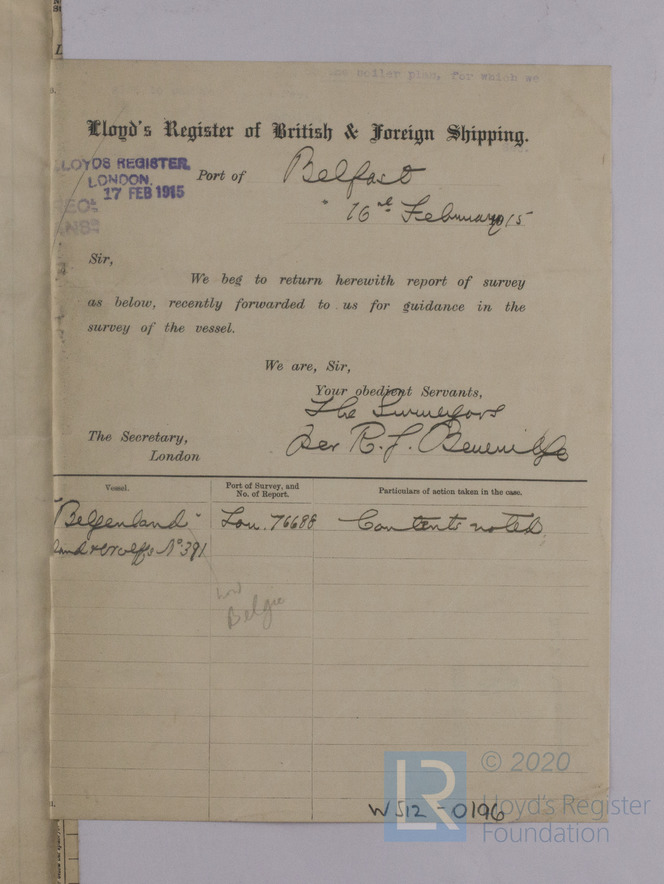 boiler plan, for which we
Lloyd's Register of British & Foreign Shipping.
LLOYDS REGISTER,
LONDON.
17 FEB 1915
Port of Belfast
16th February 1915
Sir,
We beg to return herewith report of survey
as below, recently forwarded to us for guidance in the
survey of the vessel.
We are, Sir,
Your obedient Servants,
The Surveyors
per R. J. Beveridge
The Secretary,
London
Vessel.
Port of Survey, and
No. of Report.
Particulars of action taken in the case.
"Belgenland" Lon. 76688 Contents noted.
Wolffs No 391
now
Belgic
WS12-0196
LR
© 2020
Lloyd's Register
Foundation